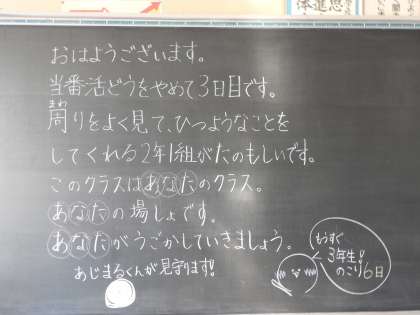 おはようございます。
当番活どうをやめて3日目です。
周りをよく見て、ひつようなことを
してくれる2年1組がたのもしいです。
このクラスはあなたのクラス。
あなたの場しょです。
あなたがうごかしていきましょう。
あじまるくんが見守ります!!
もうすぐ
3年生!!
のこり6日